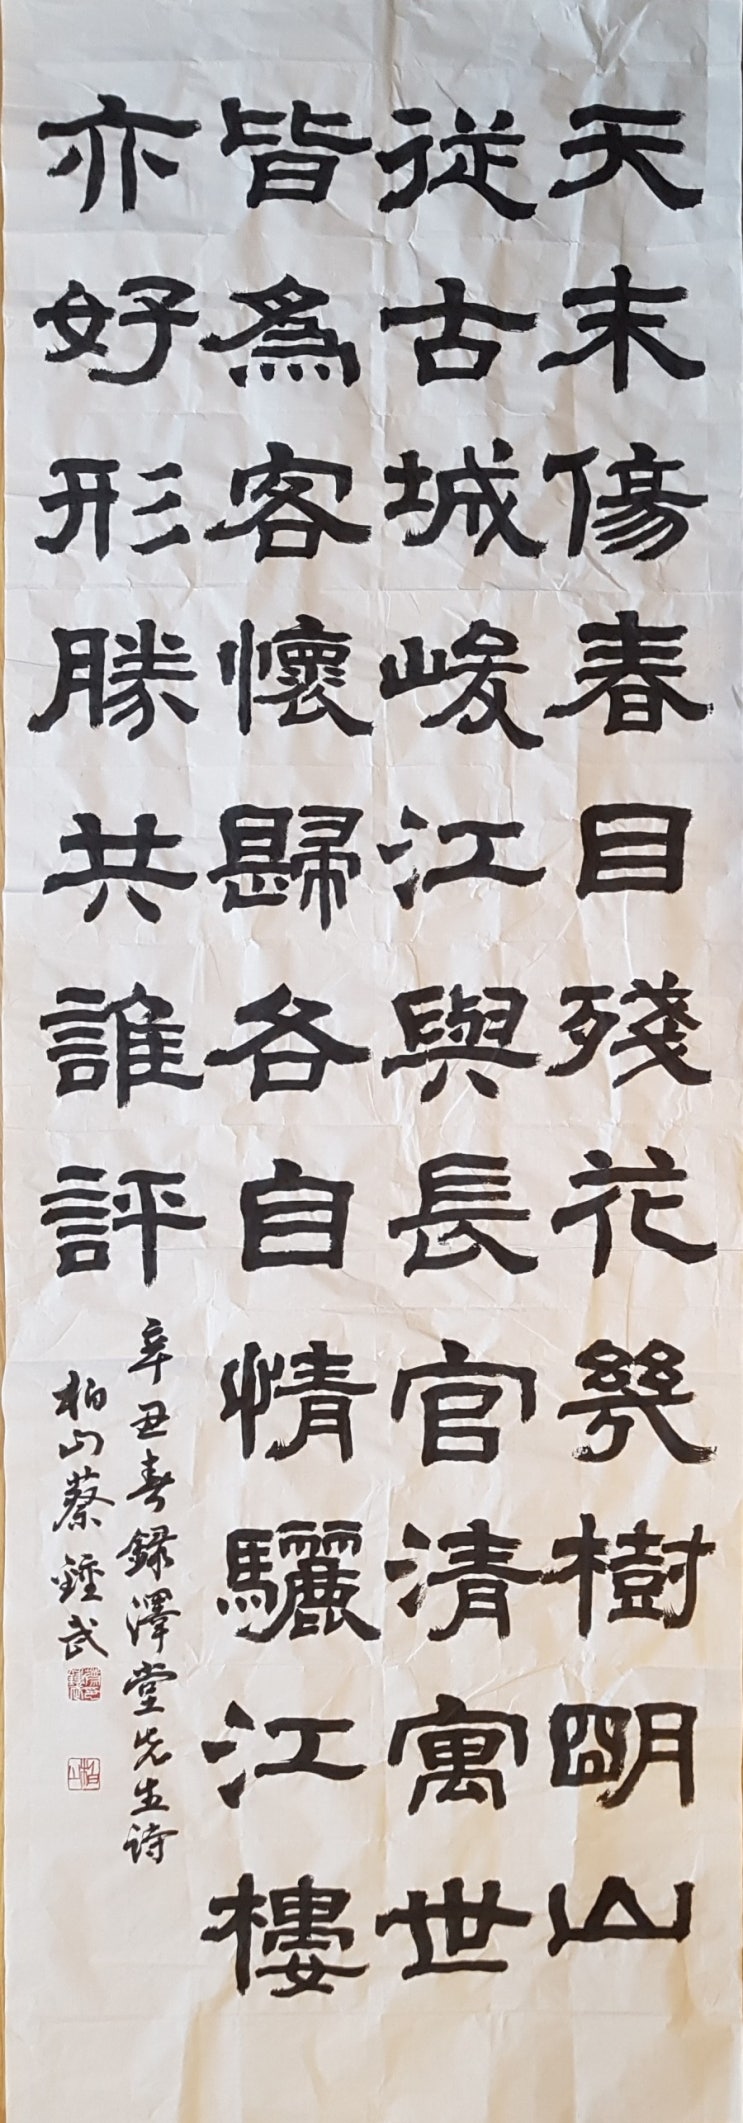 天末傷春目殘花幾樹明山
從古城峻江與長官清寓世
皆爲客懷歸各自情驪江樓
亦好形勝共誰評
辛丑春錄澤堂先生诗
柏山蔡鍾武